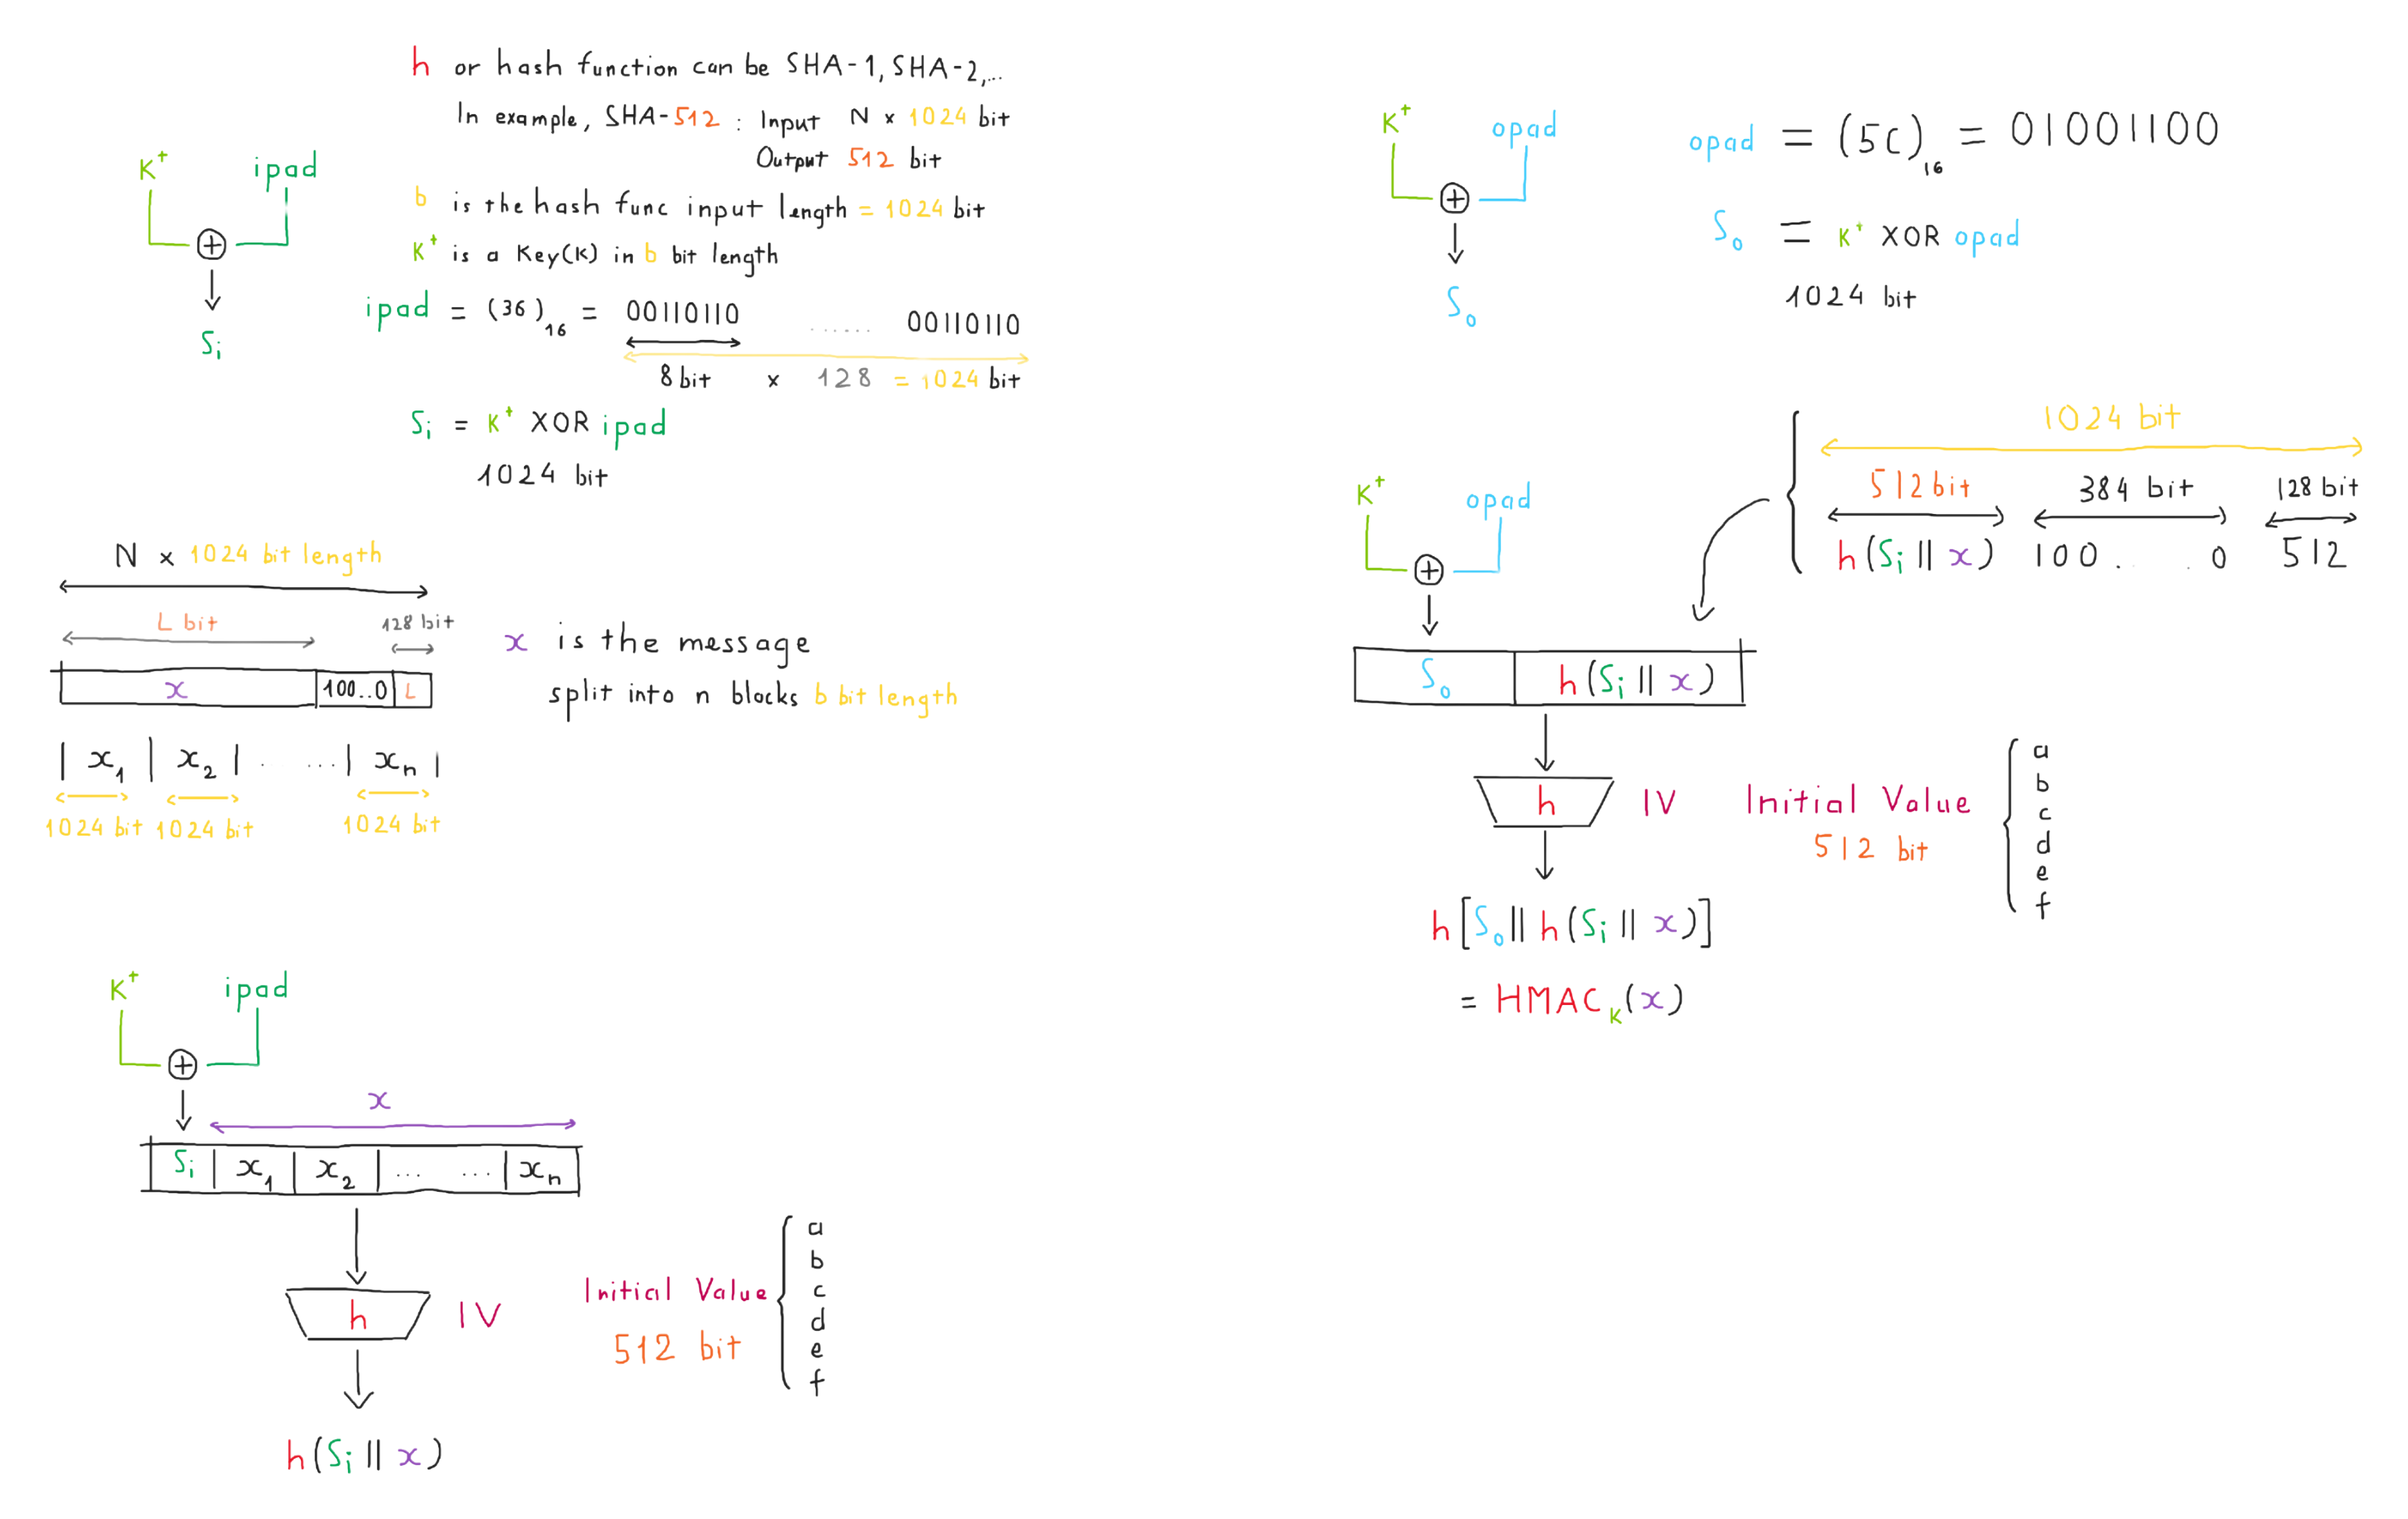 h or hash function can be SHA-1, SHA-2,...
In example, SHA-512 : Input N × 1024 bit
Output 512 bit
b is the hash func input length = 1024 bit
K+ is a Key(K) in b bit length
K+ ipad
⊕
Si
ipad = (36)16 = 00110110 ...... 00110110
8 bit × 128 = 1024 bit
Si = K+ XOR ipad
1024 bit
N × 1024 bit length
L bit 128 bit
x 100..0 L
x is the message
split into n blocks b bit length
| x1 | x2 | . ...| xn |
1024 bit 1024 bit 1024 bit
K+ ipad
⊕
x
Si | x1 | x2 | ... ... | xn
h IV
Initial Value
512 bit
a
b
c
d
e
f
h(Si || x)
K+ opad
⊕
So
opad = (5C)16 = 01001100
So = K+ XOR opad
1024 bit
1024 bit
512 bit 384 bit 128 bit
h(Si || x) 100. . 0 512
K+ opad
⊕
So h(Si || x)
h IV
Initial Value
512 bit
a
b
c
d
e
f
h[So || h(Si || x)]
= HMACK(x)